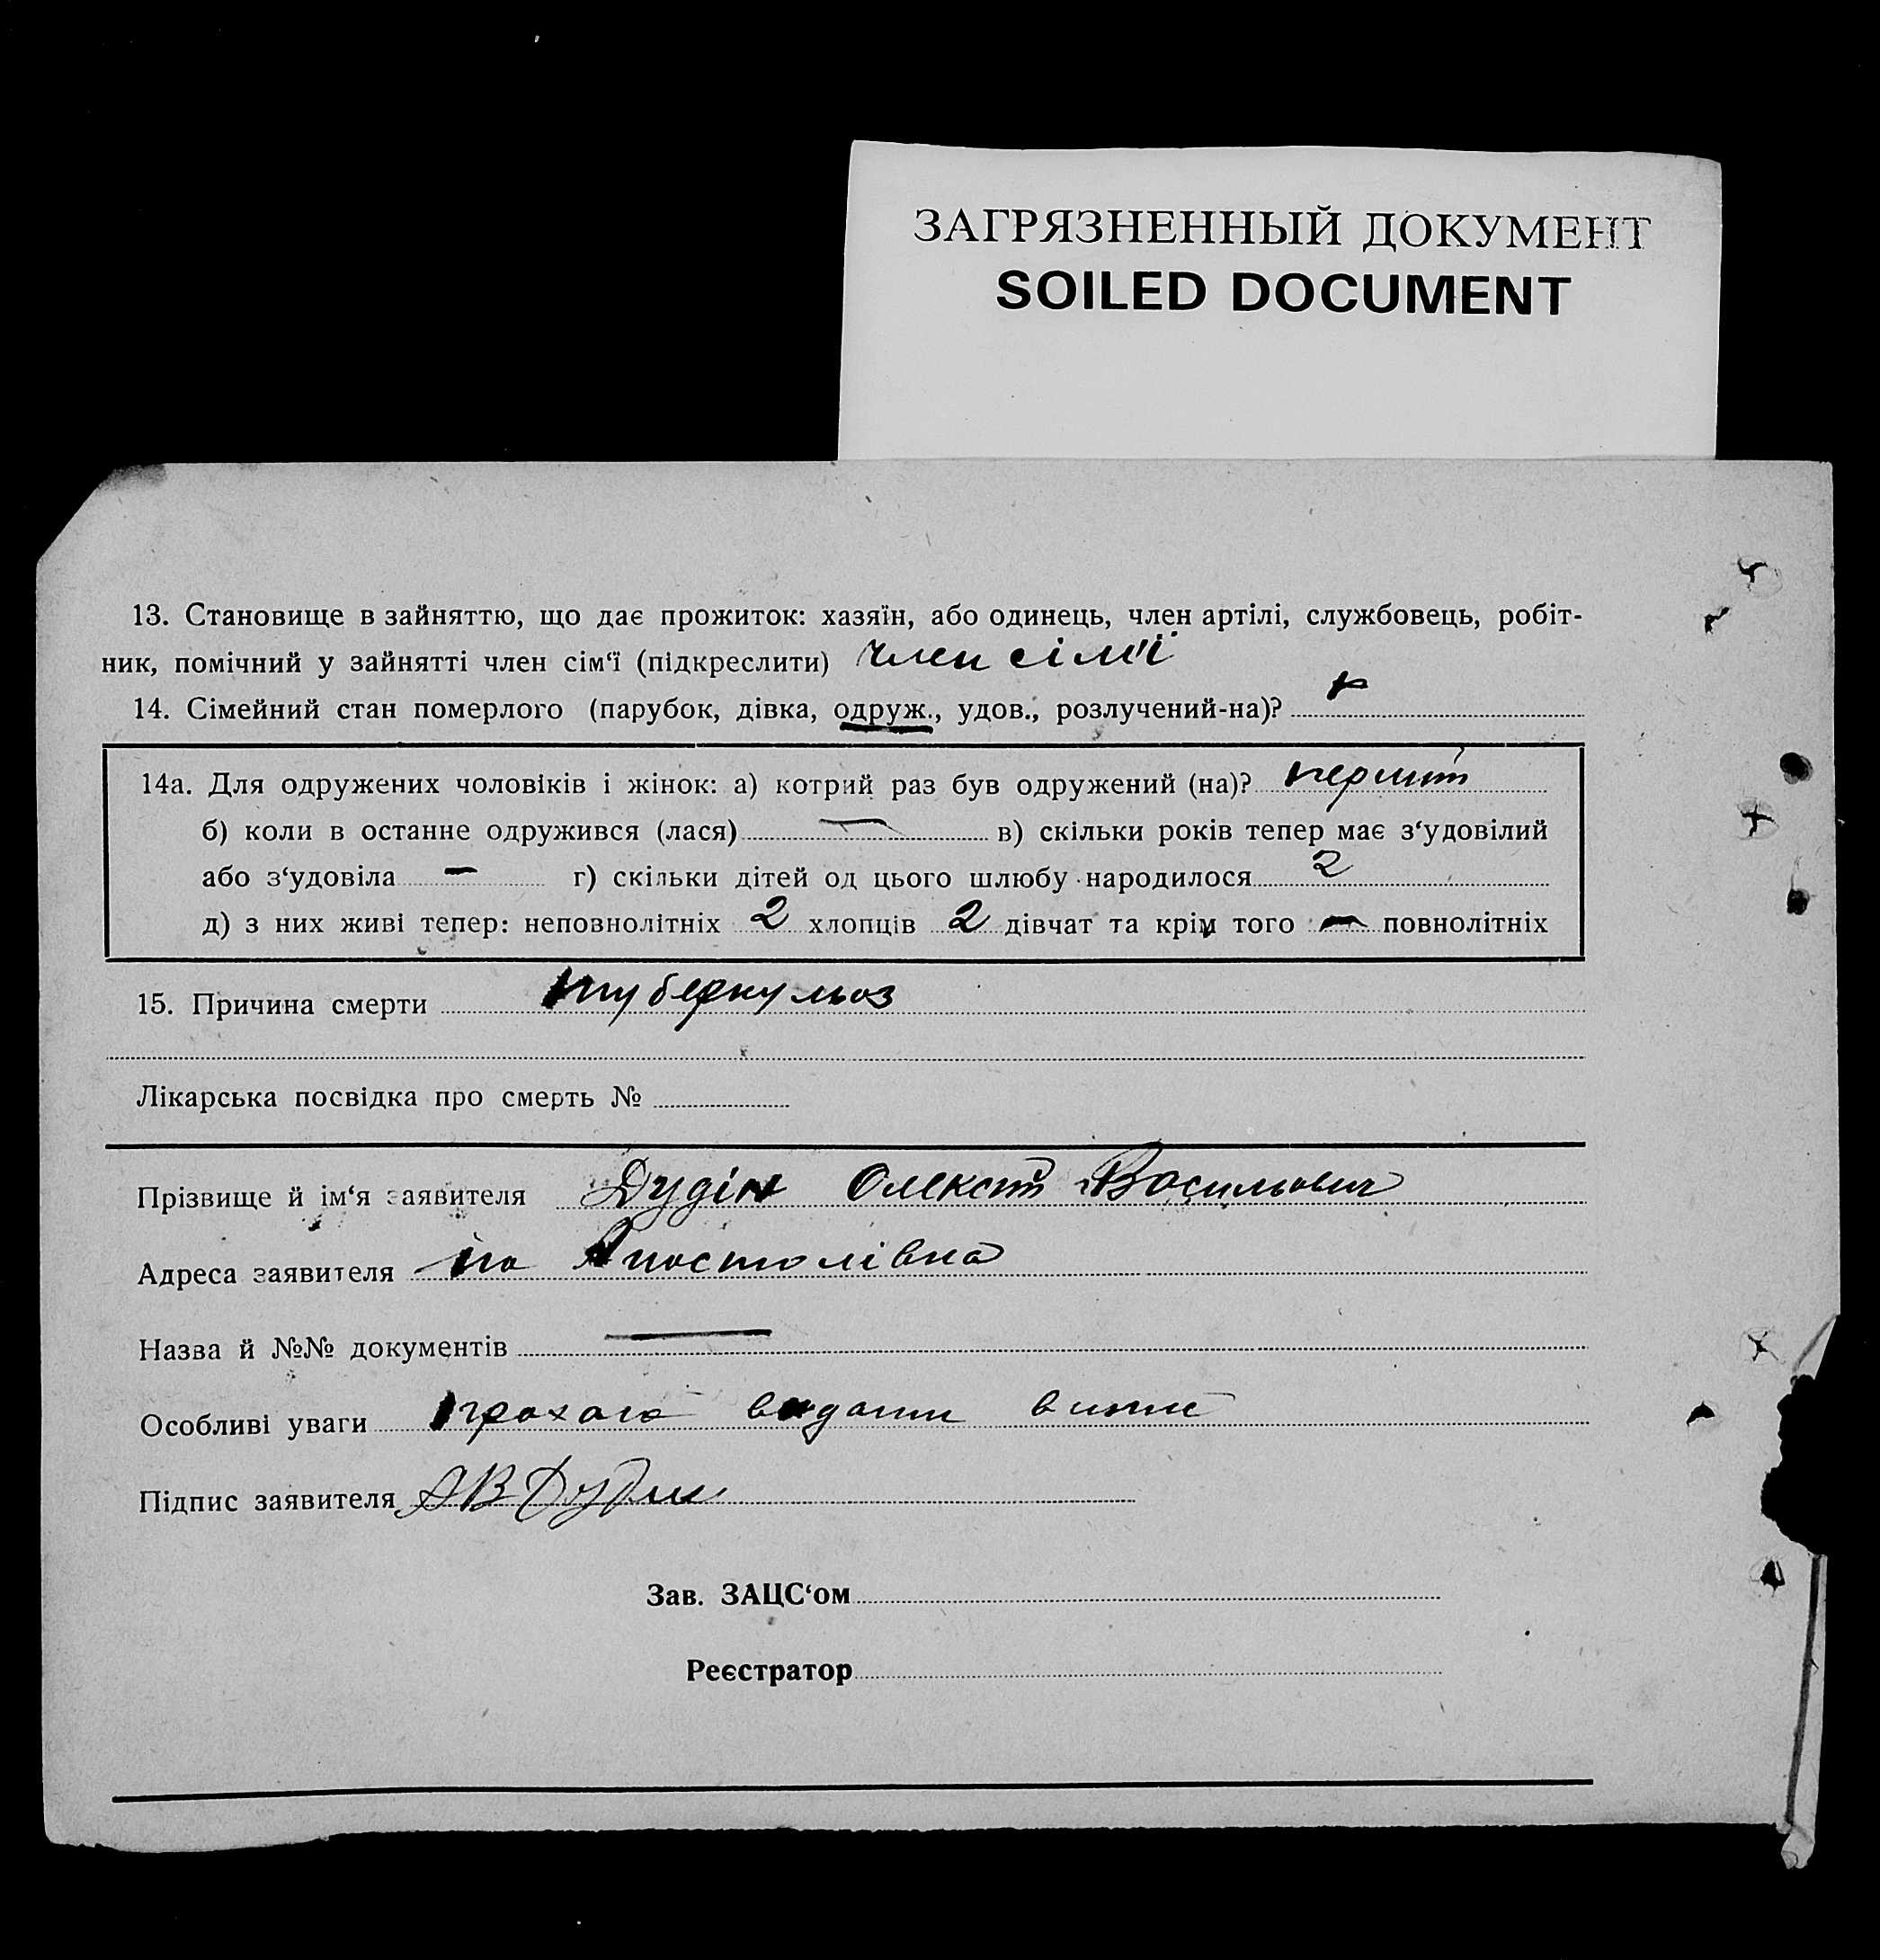 ЗАГРЯЗНЕННЫЙ ДОКУМЕНТ
SOILED DOCUMENT
13. Становище в зайняттю, що дає прожиток: хазяїн, або одинець, член артілі, службовець, робіт-
ник, помічний у зайнятті член сім‘ї (підкреслити) член сім'ї
14. Сімейний стан померлого (парубок, дівка, одруж., удов., розлучений-на)?
14а. Для одружених чоловіків і жінок: а) котрий раз був одружений (на)? перший
б) коли в останнє одружився (лася) — в) скільки років тепер має з‘удовілий
або з‘удовіла — г) скільки дітей од цього шлюбу народилося 2
д) з них живі тепер: неповнолітніх 2 хлопців 2 дівчат та крім того — повнолітніх
15. Причина смерти туберкульоз
Лікарська посвідка про смерть №
Прізвище й ім‘я заявителя Дудін Олексій Васильович
Адреса заявителя Апостолівка
Назва й №№ документів —
Особливі уваги прохаю видати
Підпис заявителя АВДудин
Зав. ЗАЦС‘ом
Реєстратор